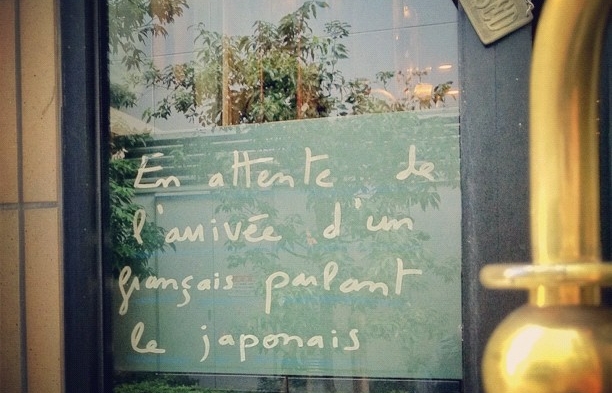 En attente de
l'arrivée d'un
français parlant
le japonais